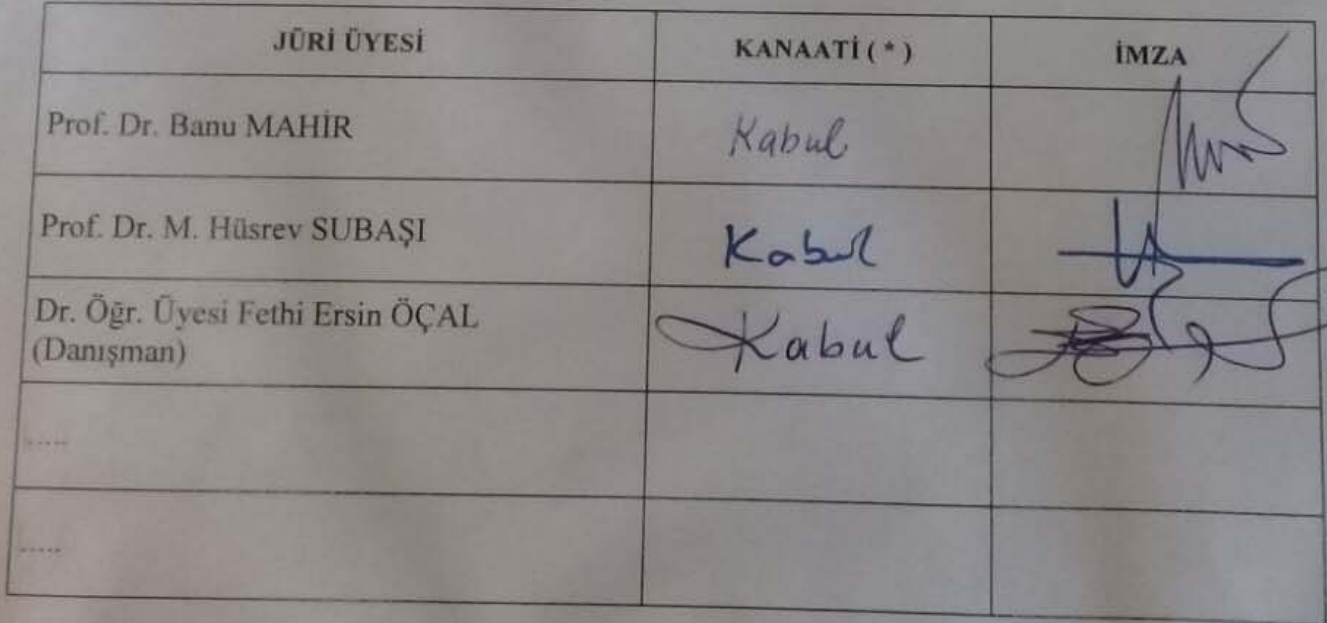 JÜRİ ÜYESİ KANAATİ ( * ) İMZA
Prof. Dr. Banu MAHİR Kabul
Prof. Dr. M. Hüsrev SUBAŞI Kabul
Dr. Öğr. Üyesi Fethi Ersin ÖÇAL Kabul
(Danışman)
.....
.....